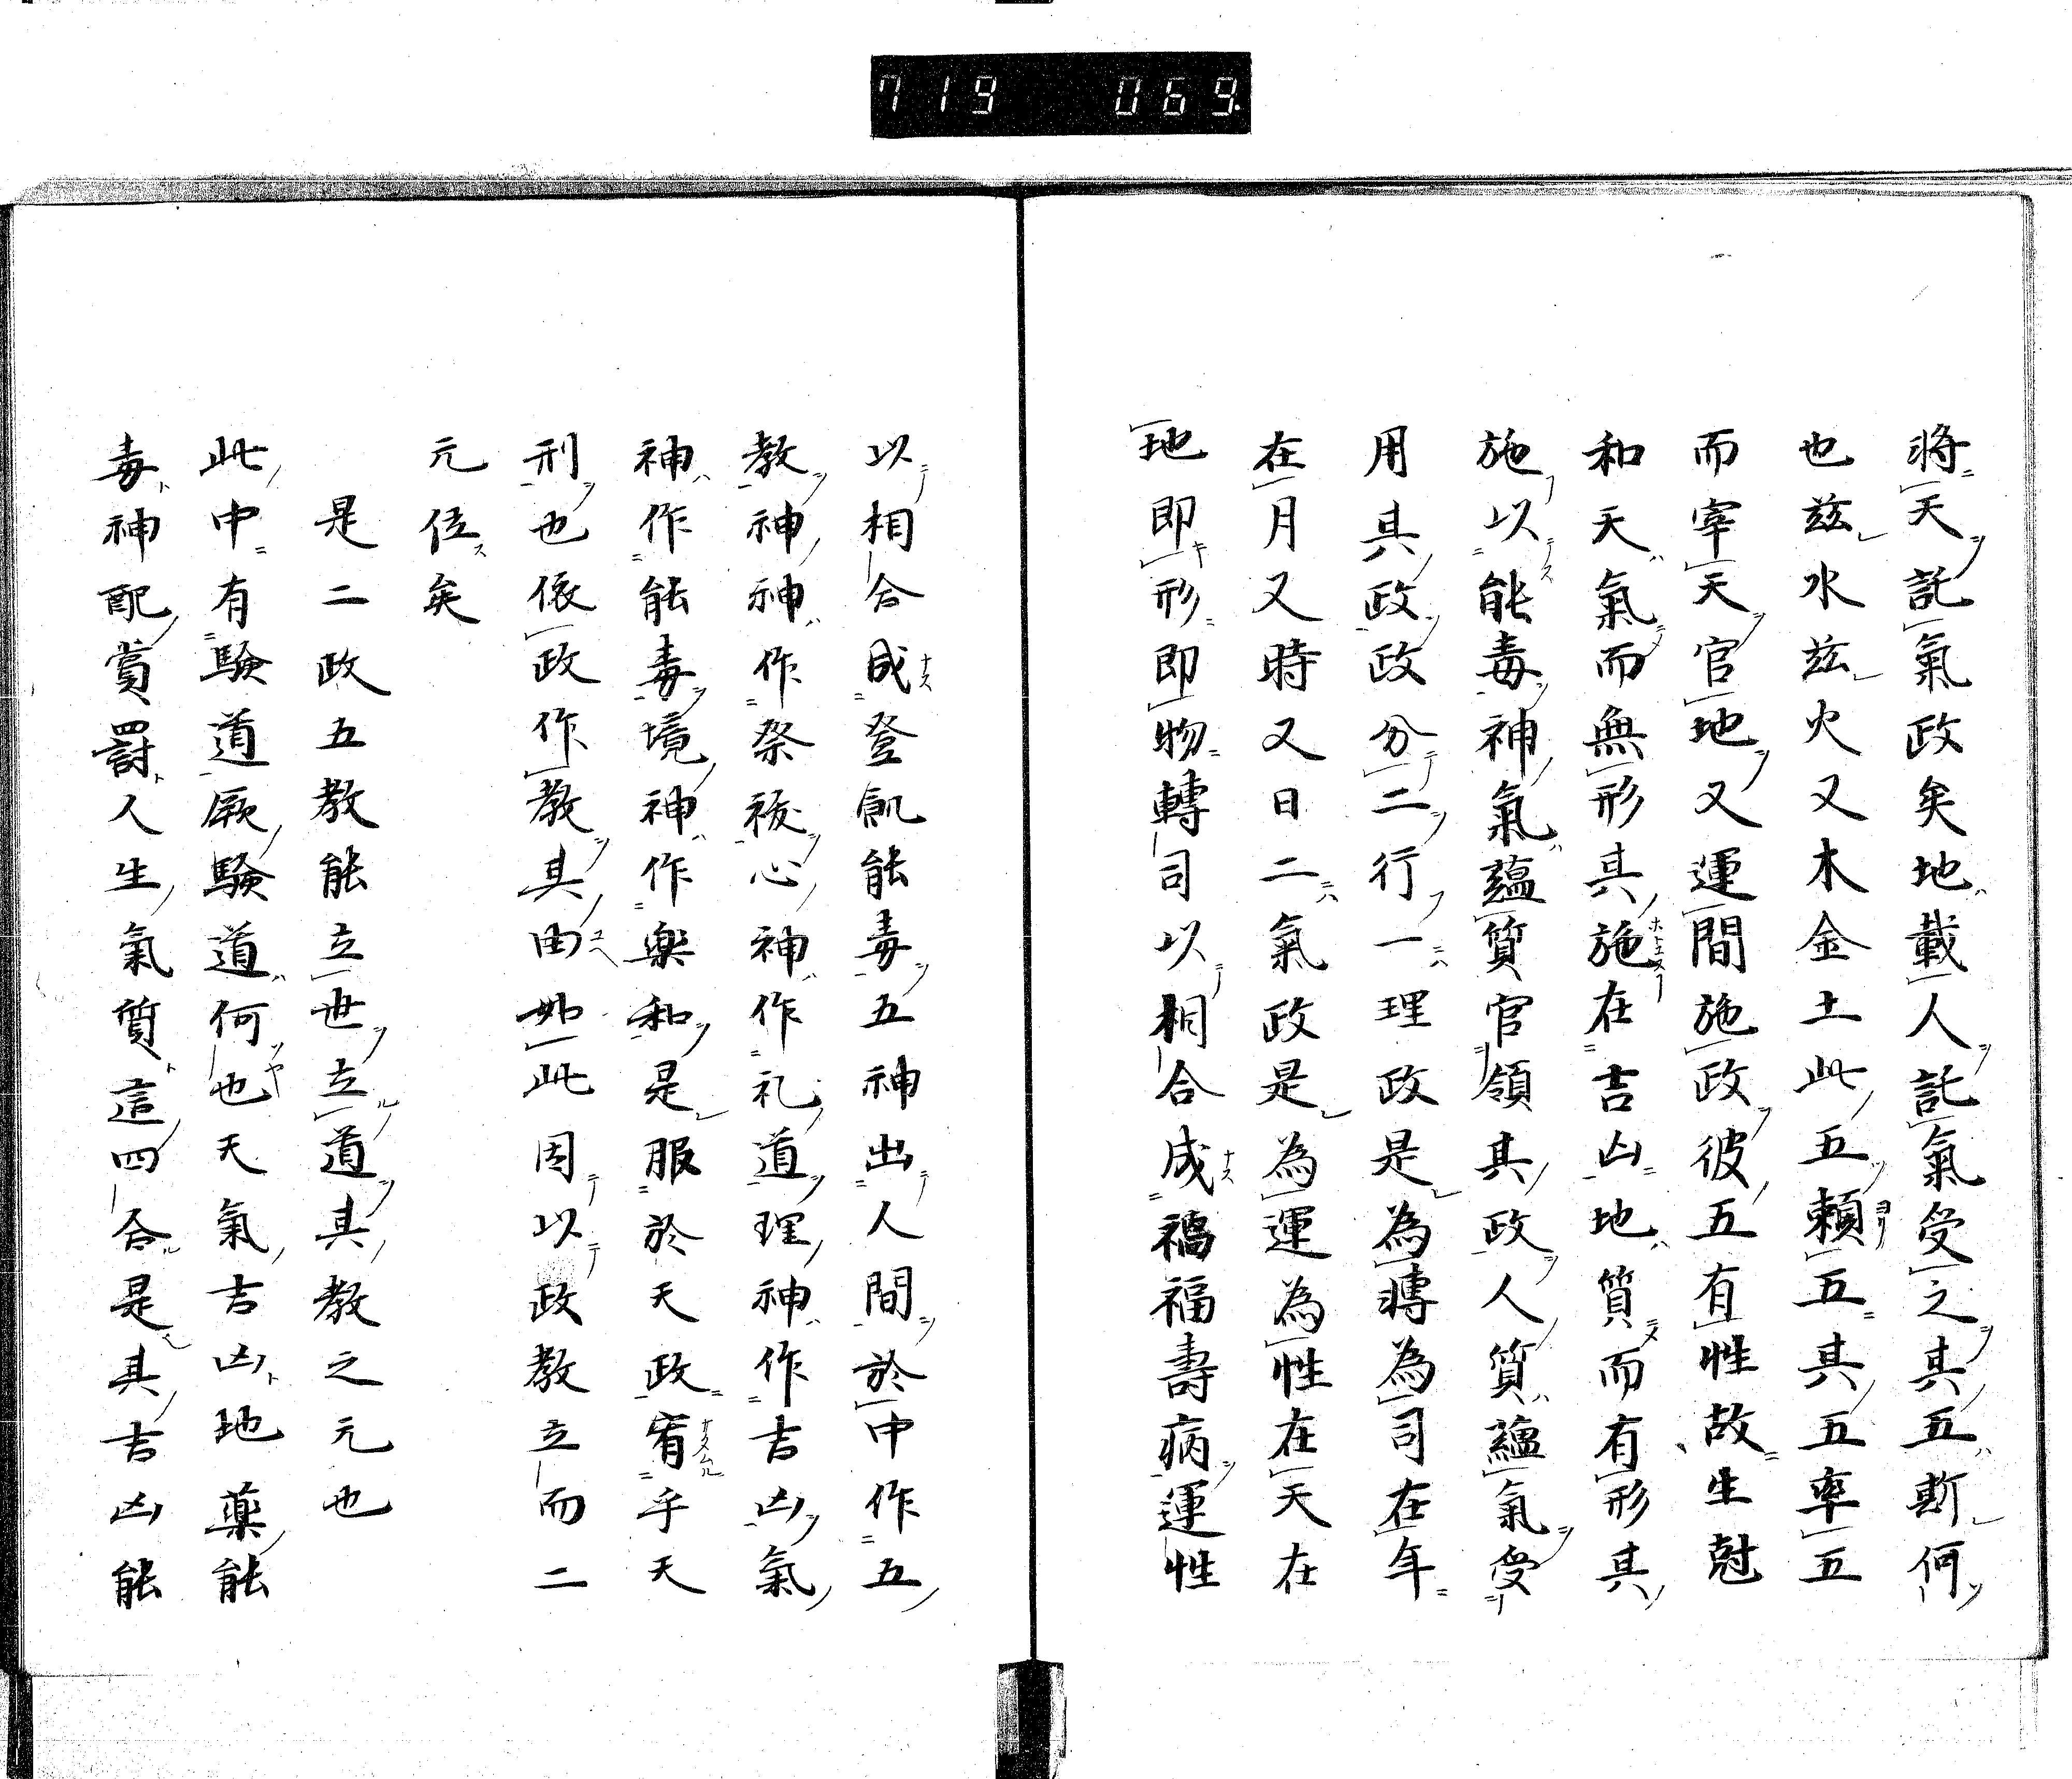 719 069
將天託氣政矣地載人託氣受之其五斯何
也兹水兹火又木金土此五頼五其五率五
而宰天官地又運間施政彼五有性故生尅
和天氣而無形其施在吉凶地質而有形其
施以能毒神氣蘊質官領其政人質蘊氣受
用其政政分二行一理政是為轉為司在年
在月又時又日二氣政是為運為性在天在
地即形即物轉司以相合成禍福壽病運性
以相合成登飢能毒五神出人間於中作五
教神神作祭祓心神作礼道理神作吉凶氣
神作能毒境神作楽和是服於天政宥乎天
刑也依政作教其由如此因以政教立而二
元位矣
是二政五教能立世立道其教之元也
此中有験道厥験道何也天氣吉凶地薬能
毒神配賞罰人生氣質這四合是其吉凶能